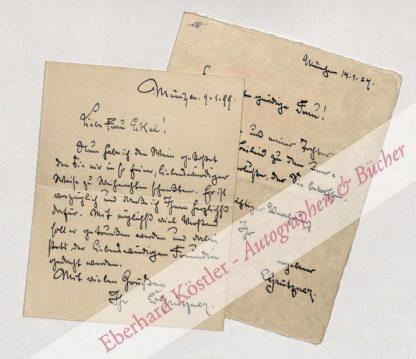 München. 9.1.99.
Liebe Frau Eckel!
Nun hab ich den Wein gekostet
den Sie mir in so feiner, liebenswürdiger
Weise zu Weihnachten schenkten. Er ist
vorzüglich und danke ich Ihnen herzlichst
dafür. Mit möglichst viel Verstand
soll er getrunken werden und dabei
stets der liebenswürdigen Freundin
gedacht werden.
Mit vielen Grüßen
Ihr EGrützner.
18
München 14.1.24.
gnädige Frau!
und meiner Tochter
Beileid zu dem
Ihr
ergebener
EGrützner.
Eberhard Köstler - Autographen & Bücher